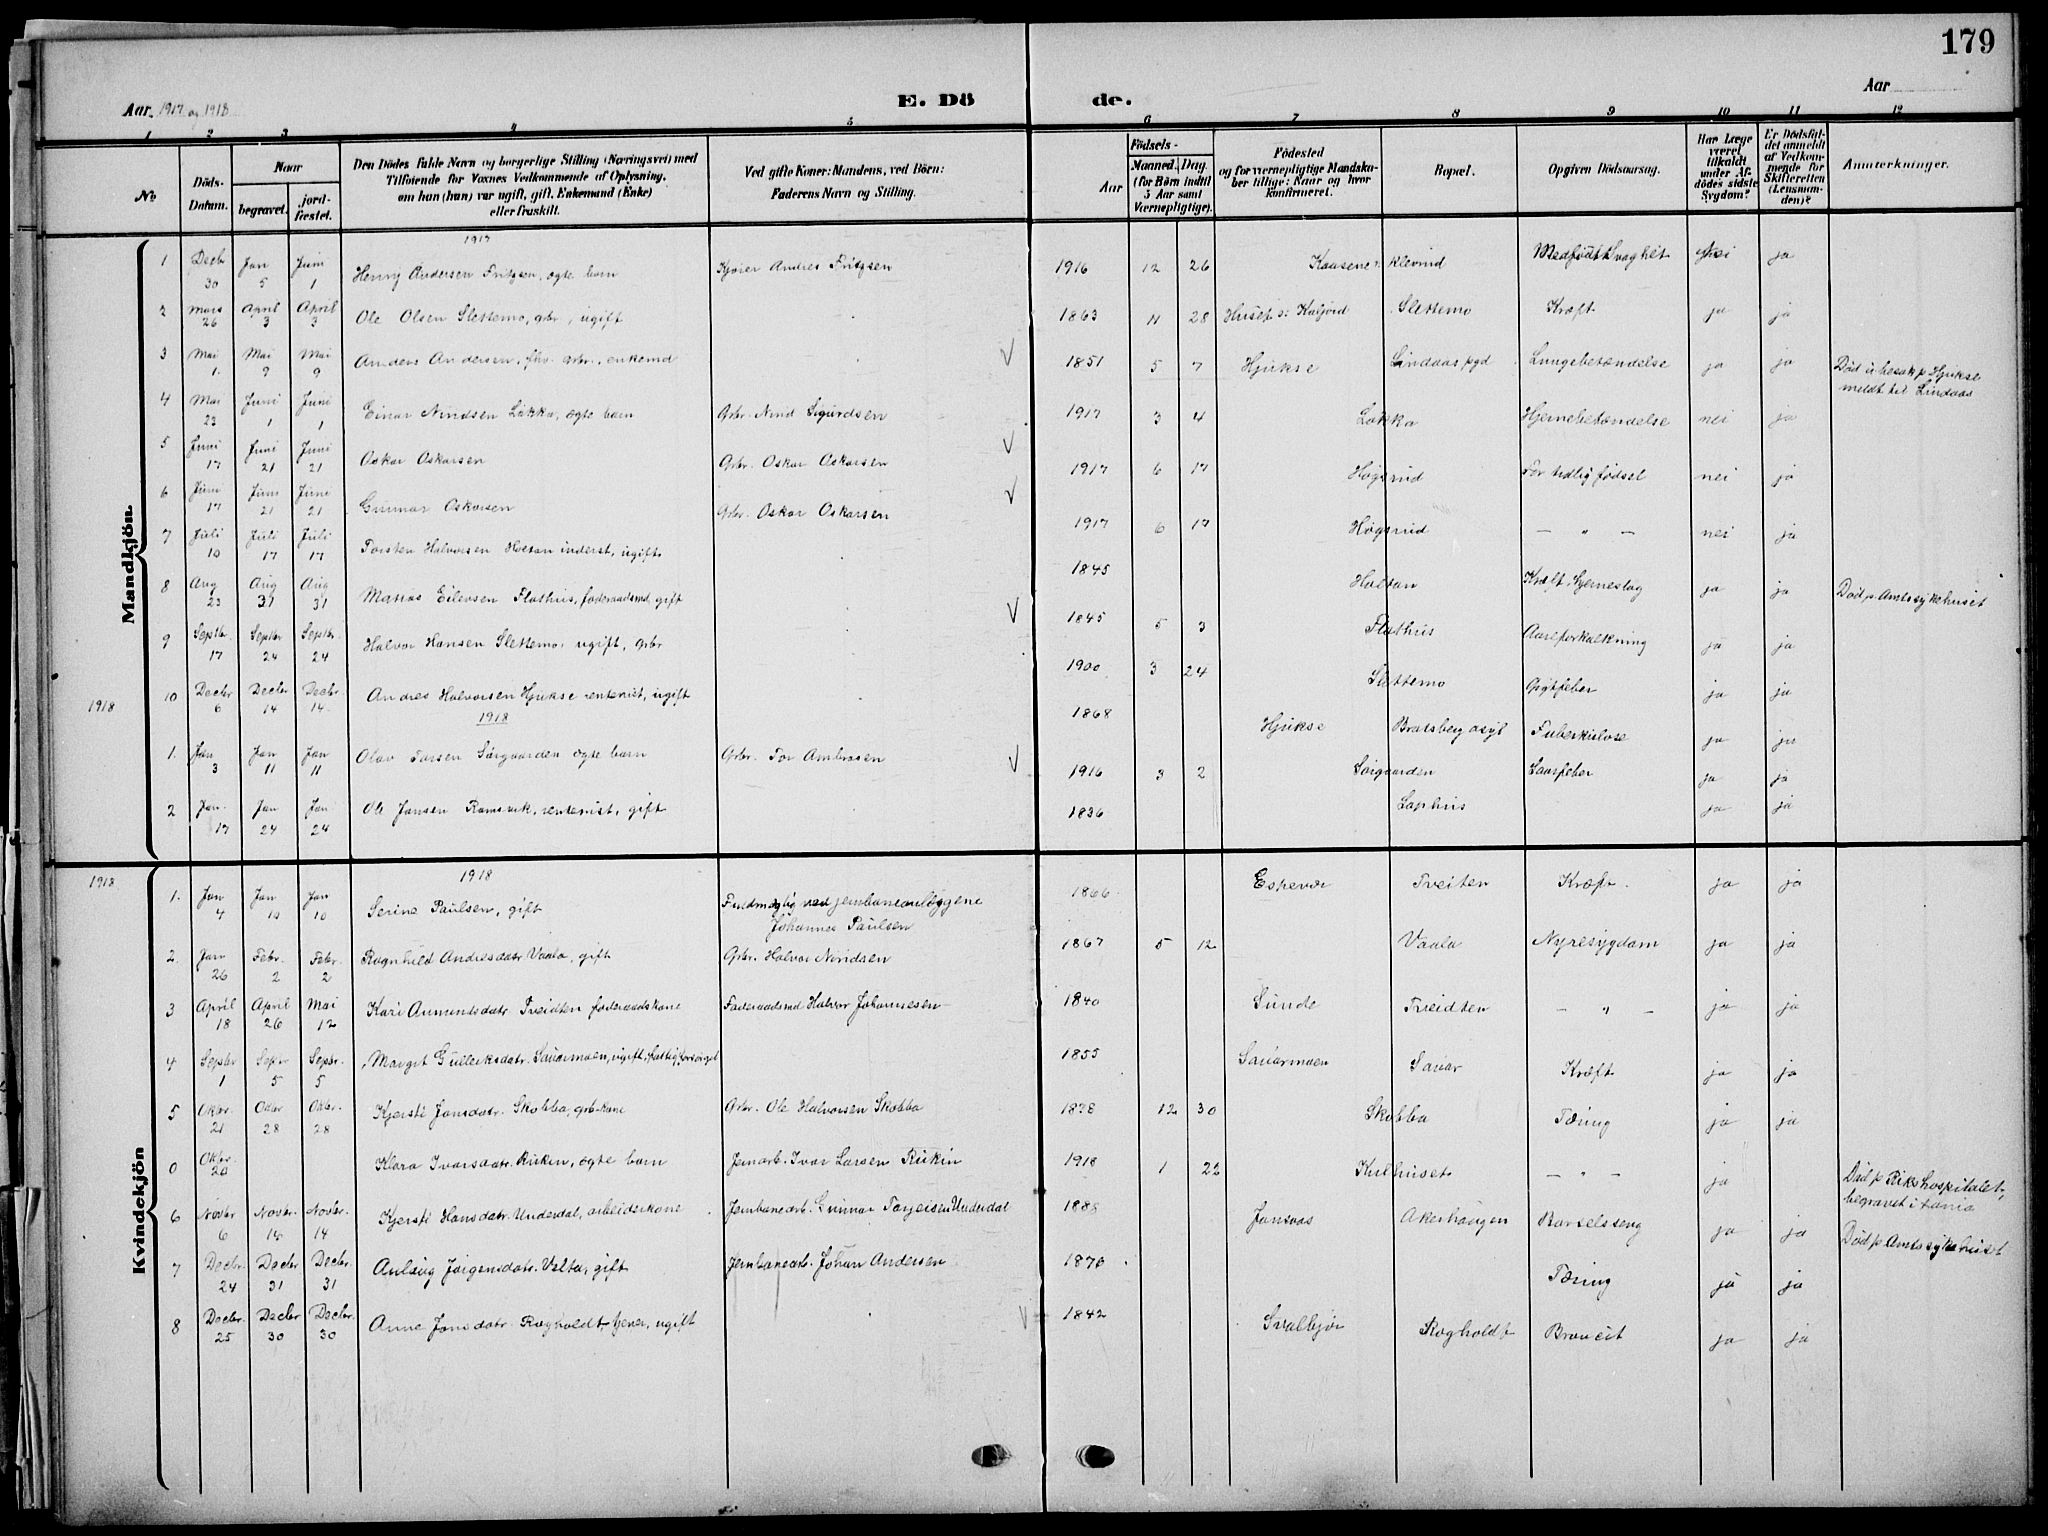 179
Aar 1917 og 1918
E. Dö
de.
Aar
1 2 3 4 5 6 7 8 9 10 11 12
No
Döds-Datum.
Naar
begravet.
jord-fæstet.
Den Dödes fulde Navn og borgerlige Stilling (Næringsvei) med
Tilföiende for Voxnes Vedkommende af Oplysning,
om han (hun) var ugift, gift, Enkemand (Enke)
eller fraskilt.
Ved gifte Koner: Mandens, ved Börn:
Faderens Navn og Stilling.
Födsels-
Aar
Maaned. Dag.
(for Börn indtil
5 Aar samt
Værnepligtige).
Födested
og for værnepligtige Mandska-
ber tillige: Naar og hvor
konfirmeret.
Bopæl.
Opgiven Dödsaarsag.
Har Læge
været
tilkaldt
under Af-
dödes sidste
Sygdom?
Er Dödsfal-
det anmeldt
af Vedkom-
mende for
Skifteretten
(Lensman-
den)?
Anmærkninger.
Mandkjön.
1917
1 Decb 30 Jan 5 Juni 1 Henry Andersen Fritzsen, ogte barn Kjører Andres Fritzsen 1916 12 26 Kaasene Klevrud Medfødt Svaghet nei ja
2 Mars 26 April 3 April 3 Ole Olsen Slettemo, grbr, ugift 1863 11 28 Huset Slettemo Kræft ja ja
3 Mai 1 Mai 9 Mai 9 Anders Andersen, fhv. grbr., enkemd 1851 5 7 Hjukse Lindaas pgd Lungebetændelse ja ja Död i besøk p Hjukse
meldt til Lindaas
4 Mai 23 Juni 1 Juni 1 Einar NiridsenLøkka, ogte barn Grbr. Nirid Sigurdsen 1917 3 4 Løkka Hjernebetændelse nei ja
5 Juni 17 Juni 21 Juni 21 Oskar Oskarsen Grbr. Oskar Oskarsen 1917 6 17 Høgsrud For tidlig fødsel nei ja
6 Juni 17 Juni 21 Juni 21 Gunnar Oskarsen Grbr. Oskar Oskarsen 1917 6 17 Høgsrud — " — nei ja
7 Juli 10 Juli 17 Juli 17 Torsten Halvorsen Holtan inderst, ugift 1845 Holtan Kræft, Hjerneslag ja ja Död p Amtssykehuset
8 Aug 23 Aug 31 Aug 31 Matias Eilevsen Flathus, føderaadsmd, gift 1845 5 3 Flathus Aareforkalkning ja ja
9 Septbr. 17 Septbr 24 Septbr. 24 Halvor Hansen Slettemo, ugift, grbr 1900 3 24 Slettemo Gigtfeber ja ja
10 Decbr 6 Decbr 14 Decbr. 14 Andres Halvorsen Hjukse rentenist, ugift 1868 Hjukse Bratsberg asyl Tuberkulose ja ja
1918
1918
1. Jan 3 Jan 11 Jan 11 Olav Torsen Sørgaarden ogte barn Grbr. Tor Ambrosen 1916 3 2 Sørgaarden ja ja
2 Jan. 17 Jan 24 Jan 24 Ole Jansen Ramsvik, rentenist, gift 1836 Lophus ja ja
Kvindekjön
1918
1918
1. Jan 4 Jan 10 Jan 10 Serine Paulsen, gift Fuldmægtig ved jernbaneanlæggene
Johannes Paulsen 1866 Espevær Tveiten Kræft. ja ja
2. Jan 26 Febr. 2 Febr. 2 Ragnhild Andresdatr Vaala, gift Grbr. Halvor Niridsen 1867 5 12 Vaala Nyresygdom ja ja
3 April 18 April 26 Mai 12 Kari Aanundsdatr Tveidten føderaadskone Føderaadsmd Halvor Johannesen 1840 Sunde Tveidten — " — ja ja
4 Septbr 1 Septr 5 Septbr. 5 Margit Gulleiksdatr. Sauarmoen, ugift, fattigforsørget 1855 Sauarmoen Sauar Kræft ja ja
5 Oktbr. 21 Oktbr 28 Oktbr. 28 Kjersti Jonsdatr. Skobba, grb-kone Grbr. Ole Halvorsen Skobba 1838 12 30 Skobba Tæring ja ja
0 Oktbr. 20 Klara Ivarsdatr. Riskin, ogte barn Jernarb. Ivar Larsen Riskin 1918 1 22 Kulhuset — " — ja Död p Rikshospitalet,
begravet i
6 Novbr 6 Novbr. 14 Novbr. 14 Kjersti Hansdatr. Underdal, arbeiderkone Jernbanearb. Gunnar Torjeisen Underdal 1888 Jonsaas Akerhaugen Barselseng ja ja Död p Amtssykehuset
7 Decbr. 24 Decbr 31 Decbr. 31 Aulaug Jørgensdatr. Velta, gift Jernbanearb. Johan Andersen 1876 Tæring ja ja
8 Decbr. 25 Decbr 30 Decbr. 30 Anne Jonsdatr. Rogholdt, tjener, ugift 1842 Svalbjør Rogholdt ja ja